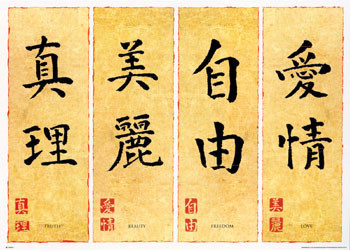 真理
美麗
自由
愛情
真理
TRUTH
愛情
BEAUTY
自由
FREEDOM
美麗
LOVE